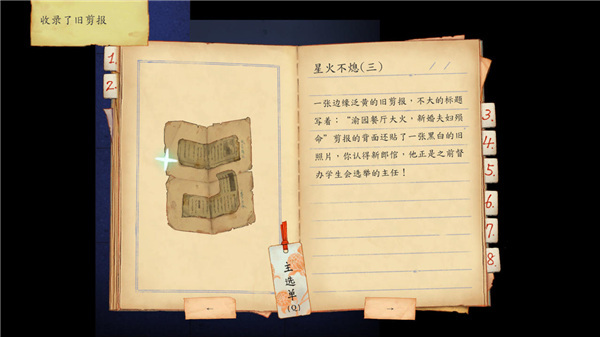 收录了旧剪报
1.
2.
星火不熄(三)
/ /
一张边缘泛黄的旧剪报，不大的标题
写着：“渝园餐厅大火，新婚夫妇殒
命”剪报的背面还贴了一张黑白的旧
照片，你认得新郎倌，他正是之前督
办学生会选举的主任！
3.
4.
5.
6.
7.
8.
主选单
(Q)
←
→